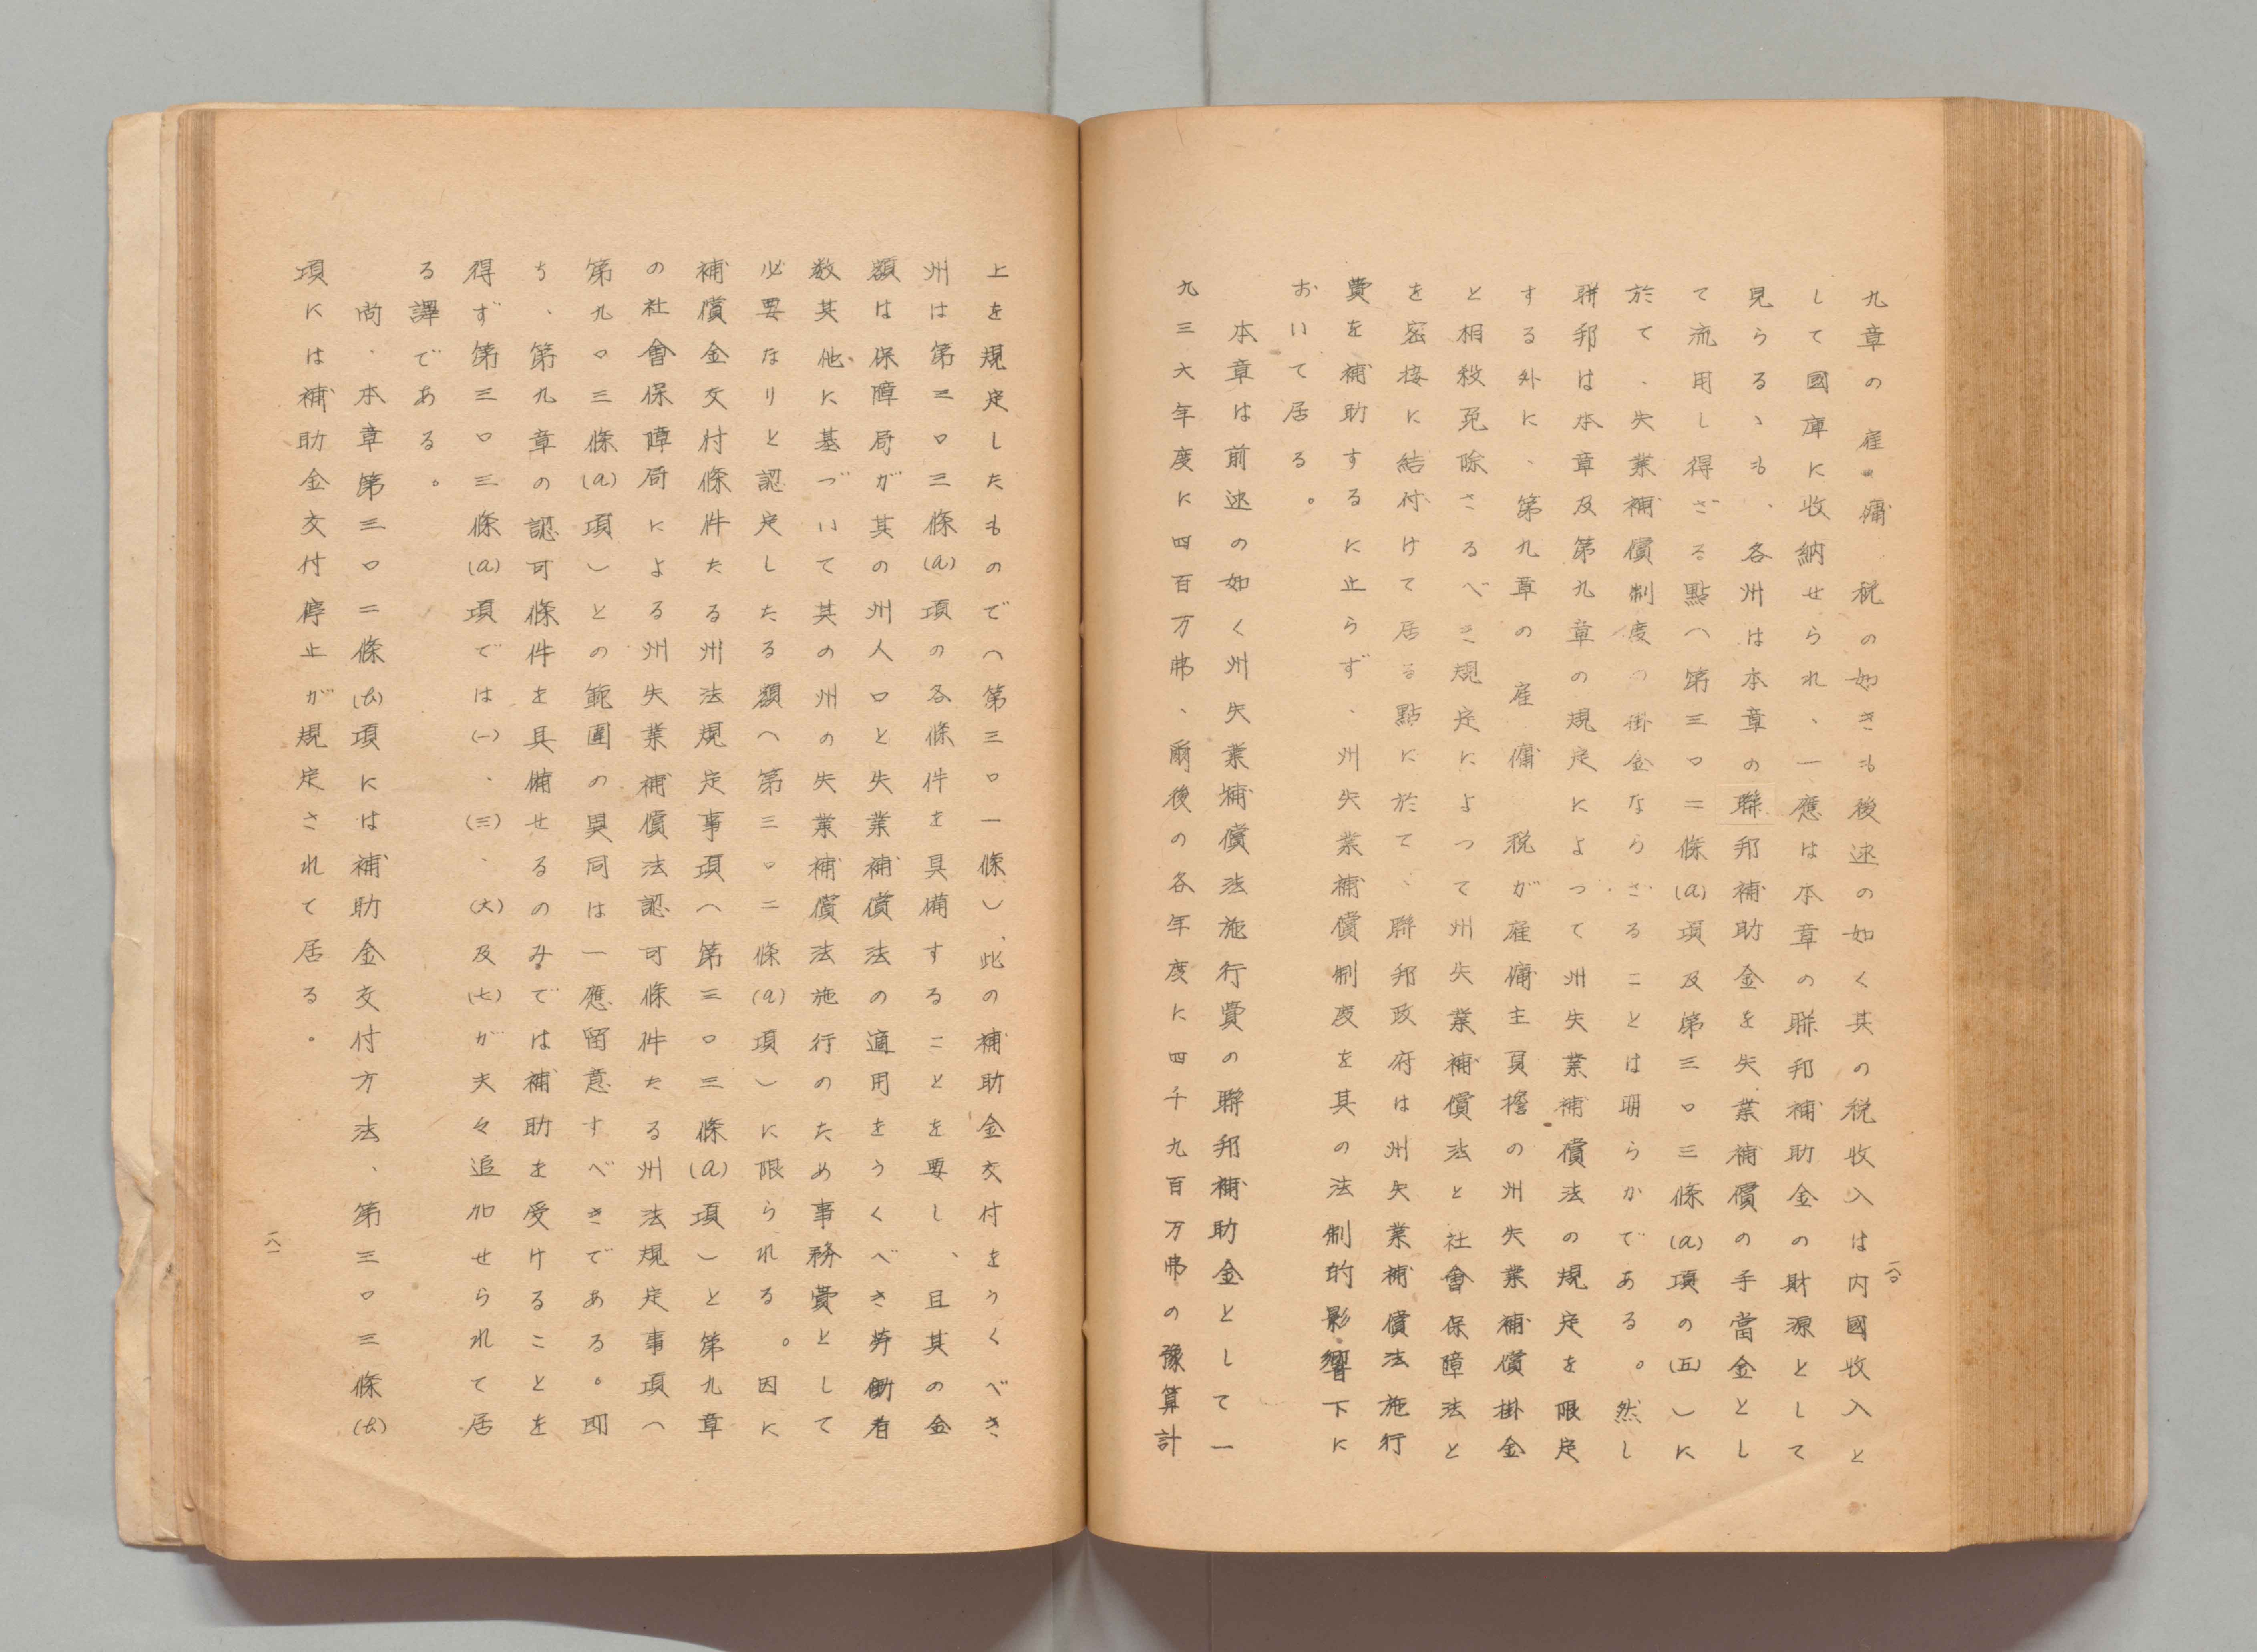 九章の雇傭税の如きも後述の如く其の税收入は内國收入と
して國庫に收納せられ、一應は本章の聯邦補助金の財源として
見らるゝも、各州は本章の聯邦補助金を失業補償の手當金とし
て流用し得ざる點（第三〇二條(a)項及第三〇三條(a)項の(五)）に
於て、失業補償制度の掛金ならざることは明らかである。然し
聯邦は本章及第九章の規定によつて州失業補償法の規定を限定
する外に、第九章の雇傭税が雇傭主負擔の州失業補償掛金
と相殺免除さるべき規定によつて州失業補償法と社會保障法と
を密接に結付けて居る點に於て、聯邦政府は州失業補償法施行
費を補助するに止らず、州失業補償制度を其の法制的影響下に
おいて居る。
本章は前述の如く州失業補償法施行費の聯邦補助金として一
九三六年度に四百万弗、爾後の各年度に四千九百万弗の豫算計
一八〇
上を規定したもので（第三〇一條）、此の補助金交付をうくべき
州は第三〇三條(a)項の各條件を具備することを要し、且其の金
額は保障局が其の州人口と失業補償法の適用をうくべき労働者
数其他に基づいて其の州の失業補償法施行のため事務費として
必要なりと認定したる額（第三〇二條(a)項）に限られる。因に
補償金交付條件たる州法規定事項（第三〇三條(a)項）と第九章
の社會保障局による州失業補償法認可條件たる州法規定事項（
第九〇三條(a)項）との範圍の異同は一應留意すべきである。即
ち、第九章の認可條件を具備せるのみでは補助を受けることを
得ず第三〇三條(a)項では(一)、(三)、(六)及(七)が夫々追加せられて居
る譯である。
尚、本章第三〇二條(b)項には補助金交付方法、第三〇三條(b)
項には補助金交付停止が規定されて居る。
一八一